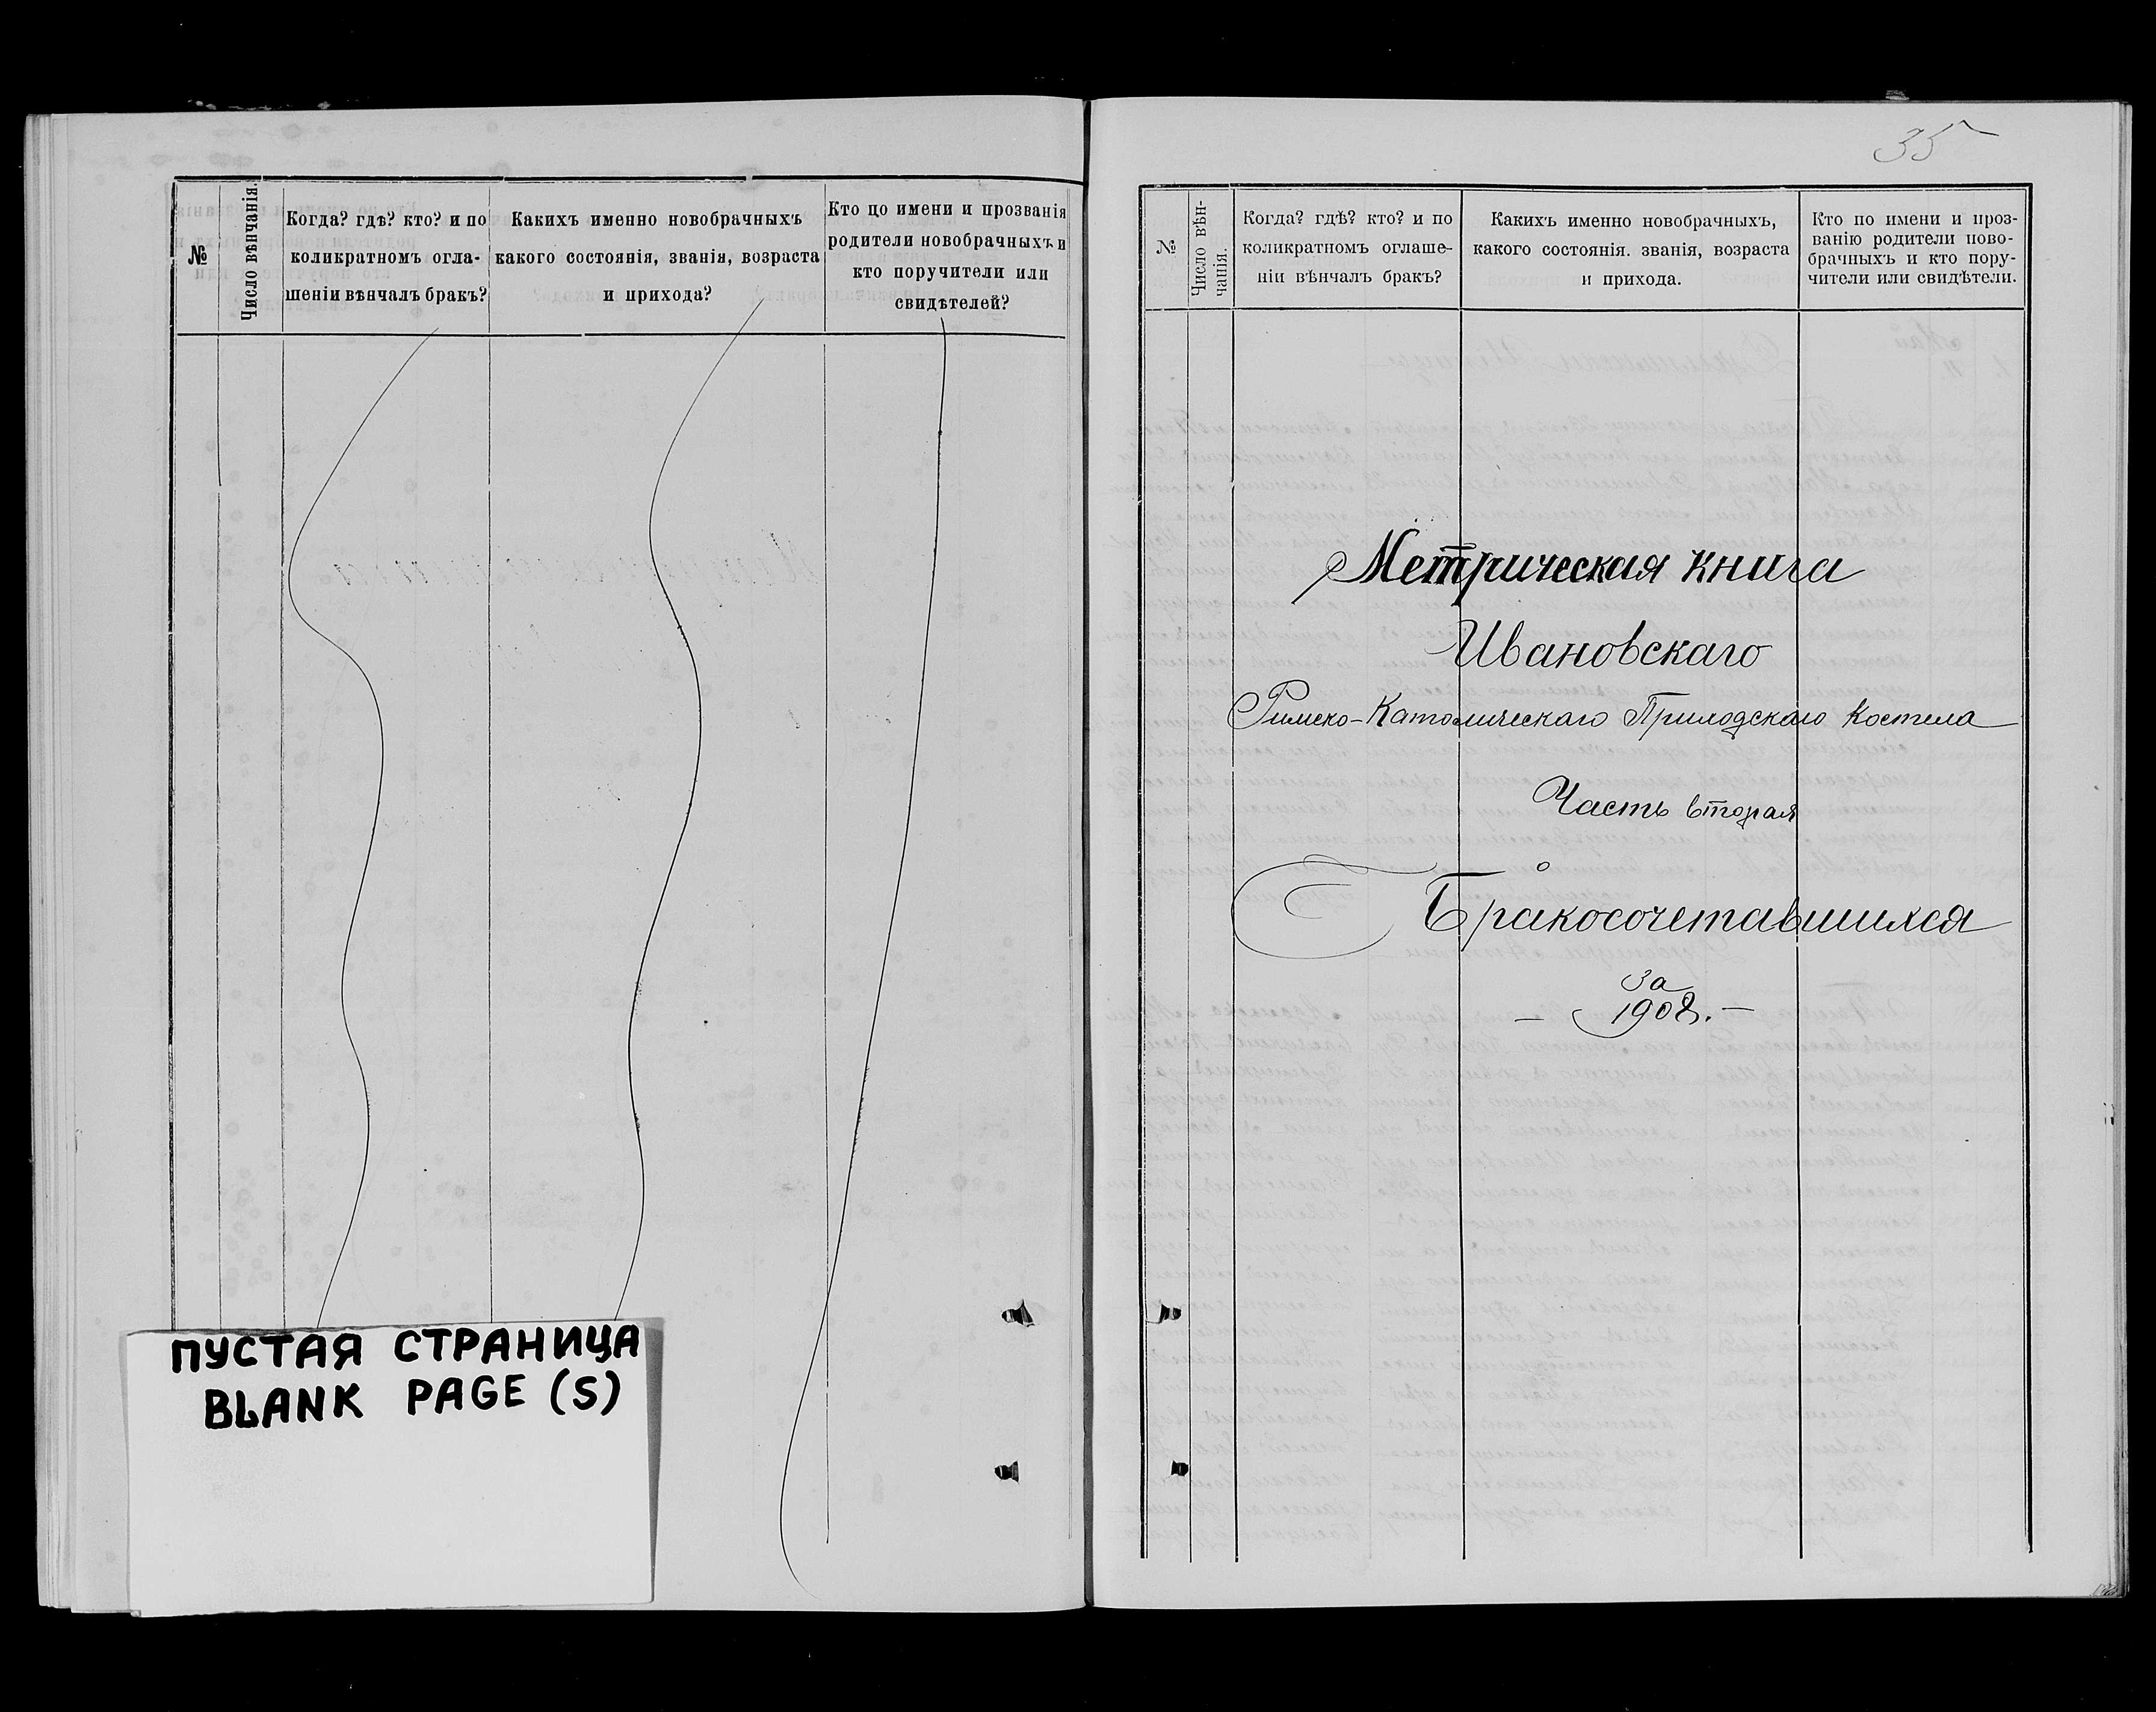 №
Число вѣнчанія.
Когда? гдѣ? кто? и по
коликратномъ огла-
шеніи вѣнчалъ бракъ?
Какихъ именно новобрачныхъ
какого состоянія, званія, возраста
и прихода?
Кто цо имени и прозванія
родители новобрачныхъ и
кто поручители или
свидѣтелей?
ПУСТАЯ СТРАНИЦА
BLANK PAGE (S)
35
№
Число вѣн-
чанія.
Когда? гдѣ? кто? и по
коликратномъ оглаше-
ніи вѣнчалъ бракъ?
Какихъ именно новобрачныхъ,
какого состоянія. званія, возраста
и прихода.
Кто по имени и проз-
ванію родители ново-
брачныхъ и кто пору-
чители или свидѣтели.
Метрическая книга
Ивановскаго
Римско-Католическаго Приходскаго Костела
Часть вторая
О
Бракосочетавшихся
За
— 1908. —